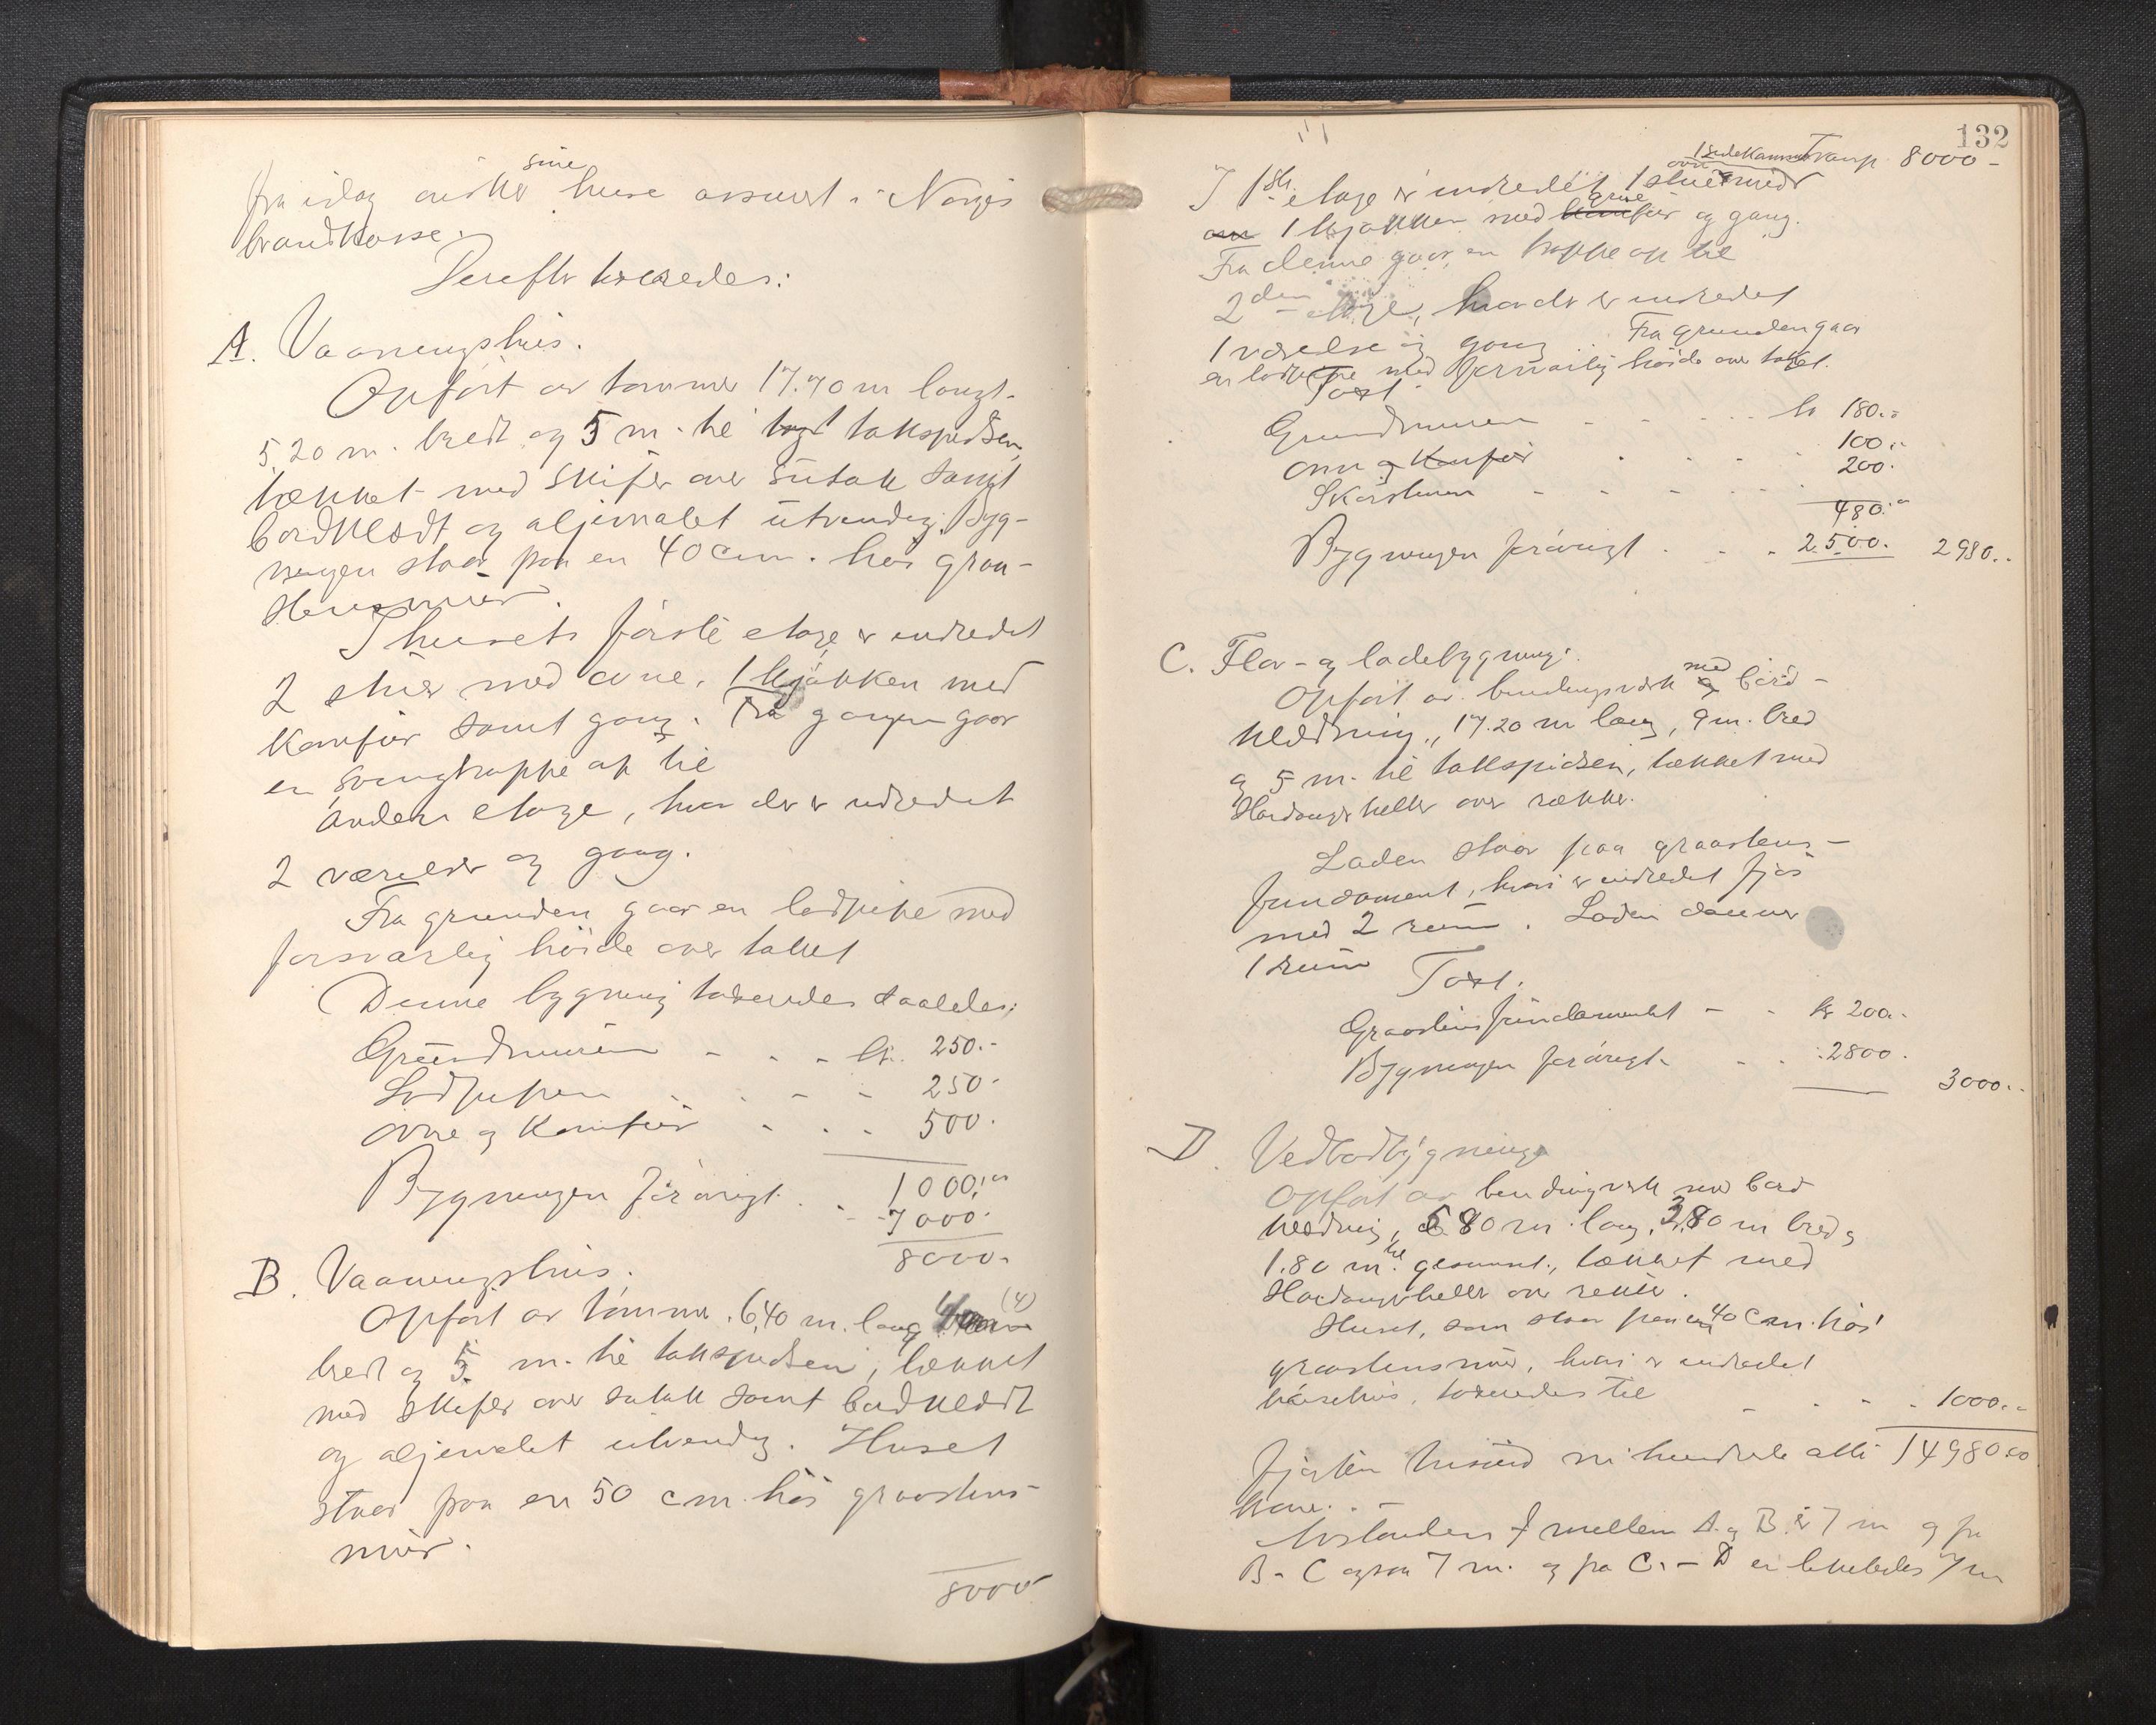 fra idag ønsker sine huse assurert i Norges
brandkasse.
Derefter taxeredes:
A. Vaaningshus.
Opført av tømmer 17.70 m langt.
5,20 m. bredt og 5 m. til takspidsen,
tækket med skifer over sutak samt
bordklædt og oljemalet utvendig. Byg-
ningen staar paa en 40 cm. høi graa-
stensmur.
I husets første etage er indredet
2 stuer med ovne, 1 kjøkken med
komfur samt gang. Fra gangen gaar
en svingtrappe op til
anden etage, hvor der er indredet
2 værelser og gang.
Fra grunden gaar en lodpipe med
forsvarlig høide over taket
Denne bygning taxeredes saaledes:
Grundmuren - - - kr. 250.-
Lodpipen - - - 250.-
Ovne og Komfur - - - 500.-
1000.00
Bygningen forøvrigt - - 7000.-
8000.-
B. Vaaningshus.
Opført av tømmer. 6,40 m. lang (4)
bredt og 5 m. til takspidsen, tækket
med skifer over sutak samt bordklædt
og oljemalet utvendig. Huset
staar paa en 50 cm. høi graastens-
mur.
8000.-
132
Transp. 8000.-
1 sidekammer
I 1ste etage er indredet 1 stue med
ovn 1 kjøkken med grue og gang.
Fra denne gaar en trappe op til
2den etage, hvor der er indredet
1 værelse og gang. Fra grunden gaar
en lodpipe med forsvarlig høide over taket.
Taxt.
Grundmuren - - - kr 180.-
Ovn og Komfur - - - 100.-
Skorstenen - - - 200.-
480.-
Bygningen forøvrigt - - - 2500.- 2980.-
C. Flor- og ladebygning.
Opført av bindingsverk med bord-
klædning, 17.20 m lang, 9 m. bred
og 5 m. til takspidsen, tækket med
Hardangerheller over rækker.
Laden staar paa graastens-
fundament, hvori er indredet fjøs
med 2 rum. Laden danner
1 rum
Taxt.
Graastensfundamentet - - kr 200.-
Bygningen forøvrigt - - 2800.-
3000.-
D. Vedbodbygning
Opført av bindingverk med bord
klædning, 5.80 m. lang, 3.80 m bred og
1.80 m. til gesimset, tækket med
Hardangerheller over rækker.
Huset, som staar paa en 40 cm. høi
graastensmur, hvori er indredet
hønsehus, taxeredes til - - - 1000.-
14980.00
Fjorten tusind ni hundrede otti
krone. -
Avstanden mellem A og B er 7 m og fra
B - C ogsaa 7 m. og fra C. - D er likeledes 7 m